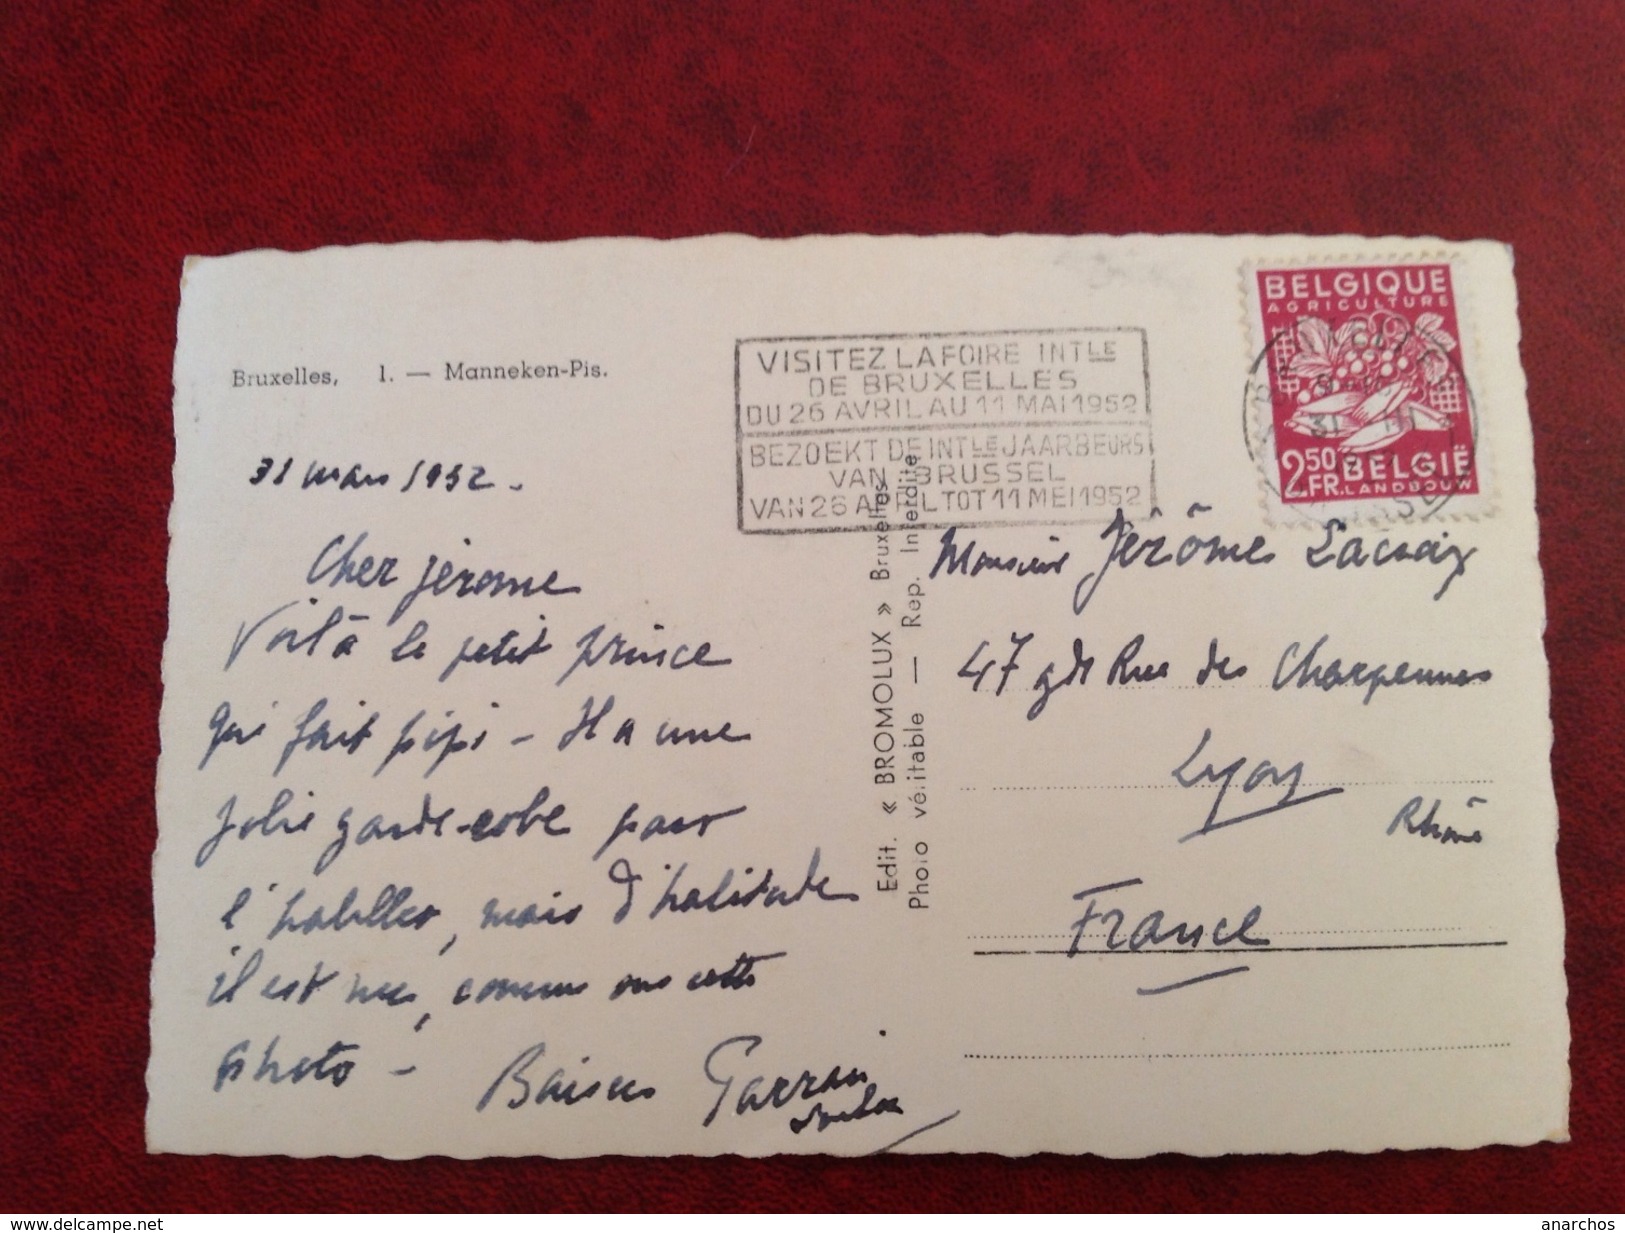 Bruxelles, 1. — Manneken-Pis.
VISITEZ LA FOIRE INTLE
DE BRUXELLES
DU 26 AVRIL AU 11 MAI 1952
BEZOEKT DE INTLE JAARBEURS
VAN BRUSSEL
VAN 26 APRIL TOT 11 MEI 1952
BELGIQUE
AGRICULTURE
2.50 FR.
BELGIË
LANDBOUW
31 mars 1952.
Cher jérome
Voilà le petit prince
qui fait pipi - Il a une
jolie garde-robe pour
l'habiller, mais d'habitude
il est nu, comme sur cette
photo -
Baisers Parrain
Edit. « BROMOLUX » Bruxelles
Photo véritable — Rep. Interdite
Monsieur Jérôme Lacroix
47 gde Rue des Charpennes
Lyon
Rhône
France
www.delcampe.net
anarchos